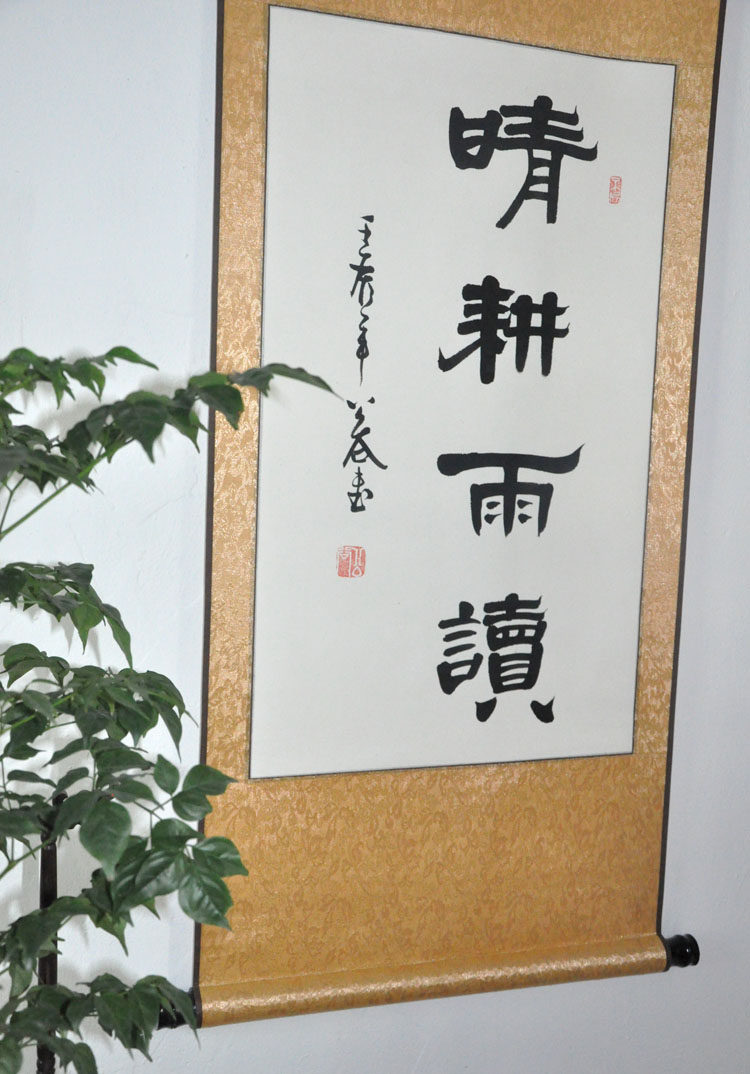 晴耕雨讀
壬辰年